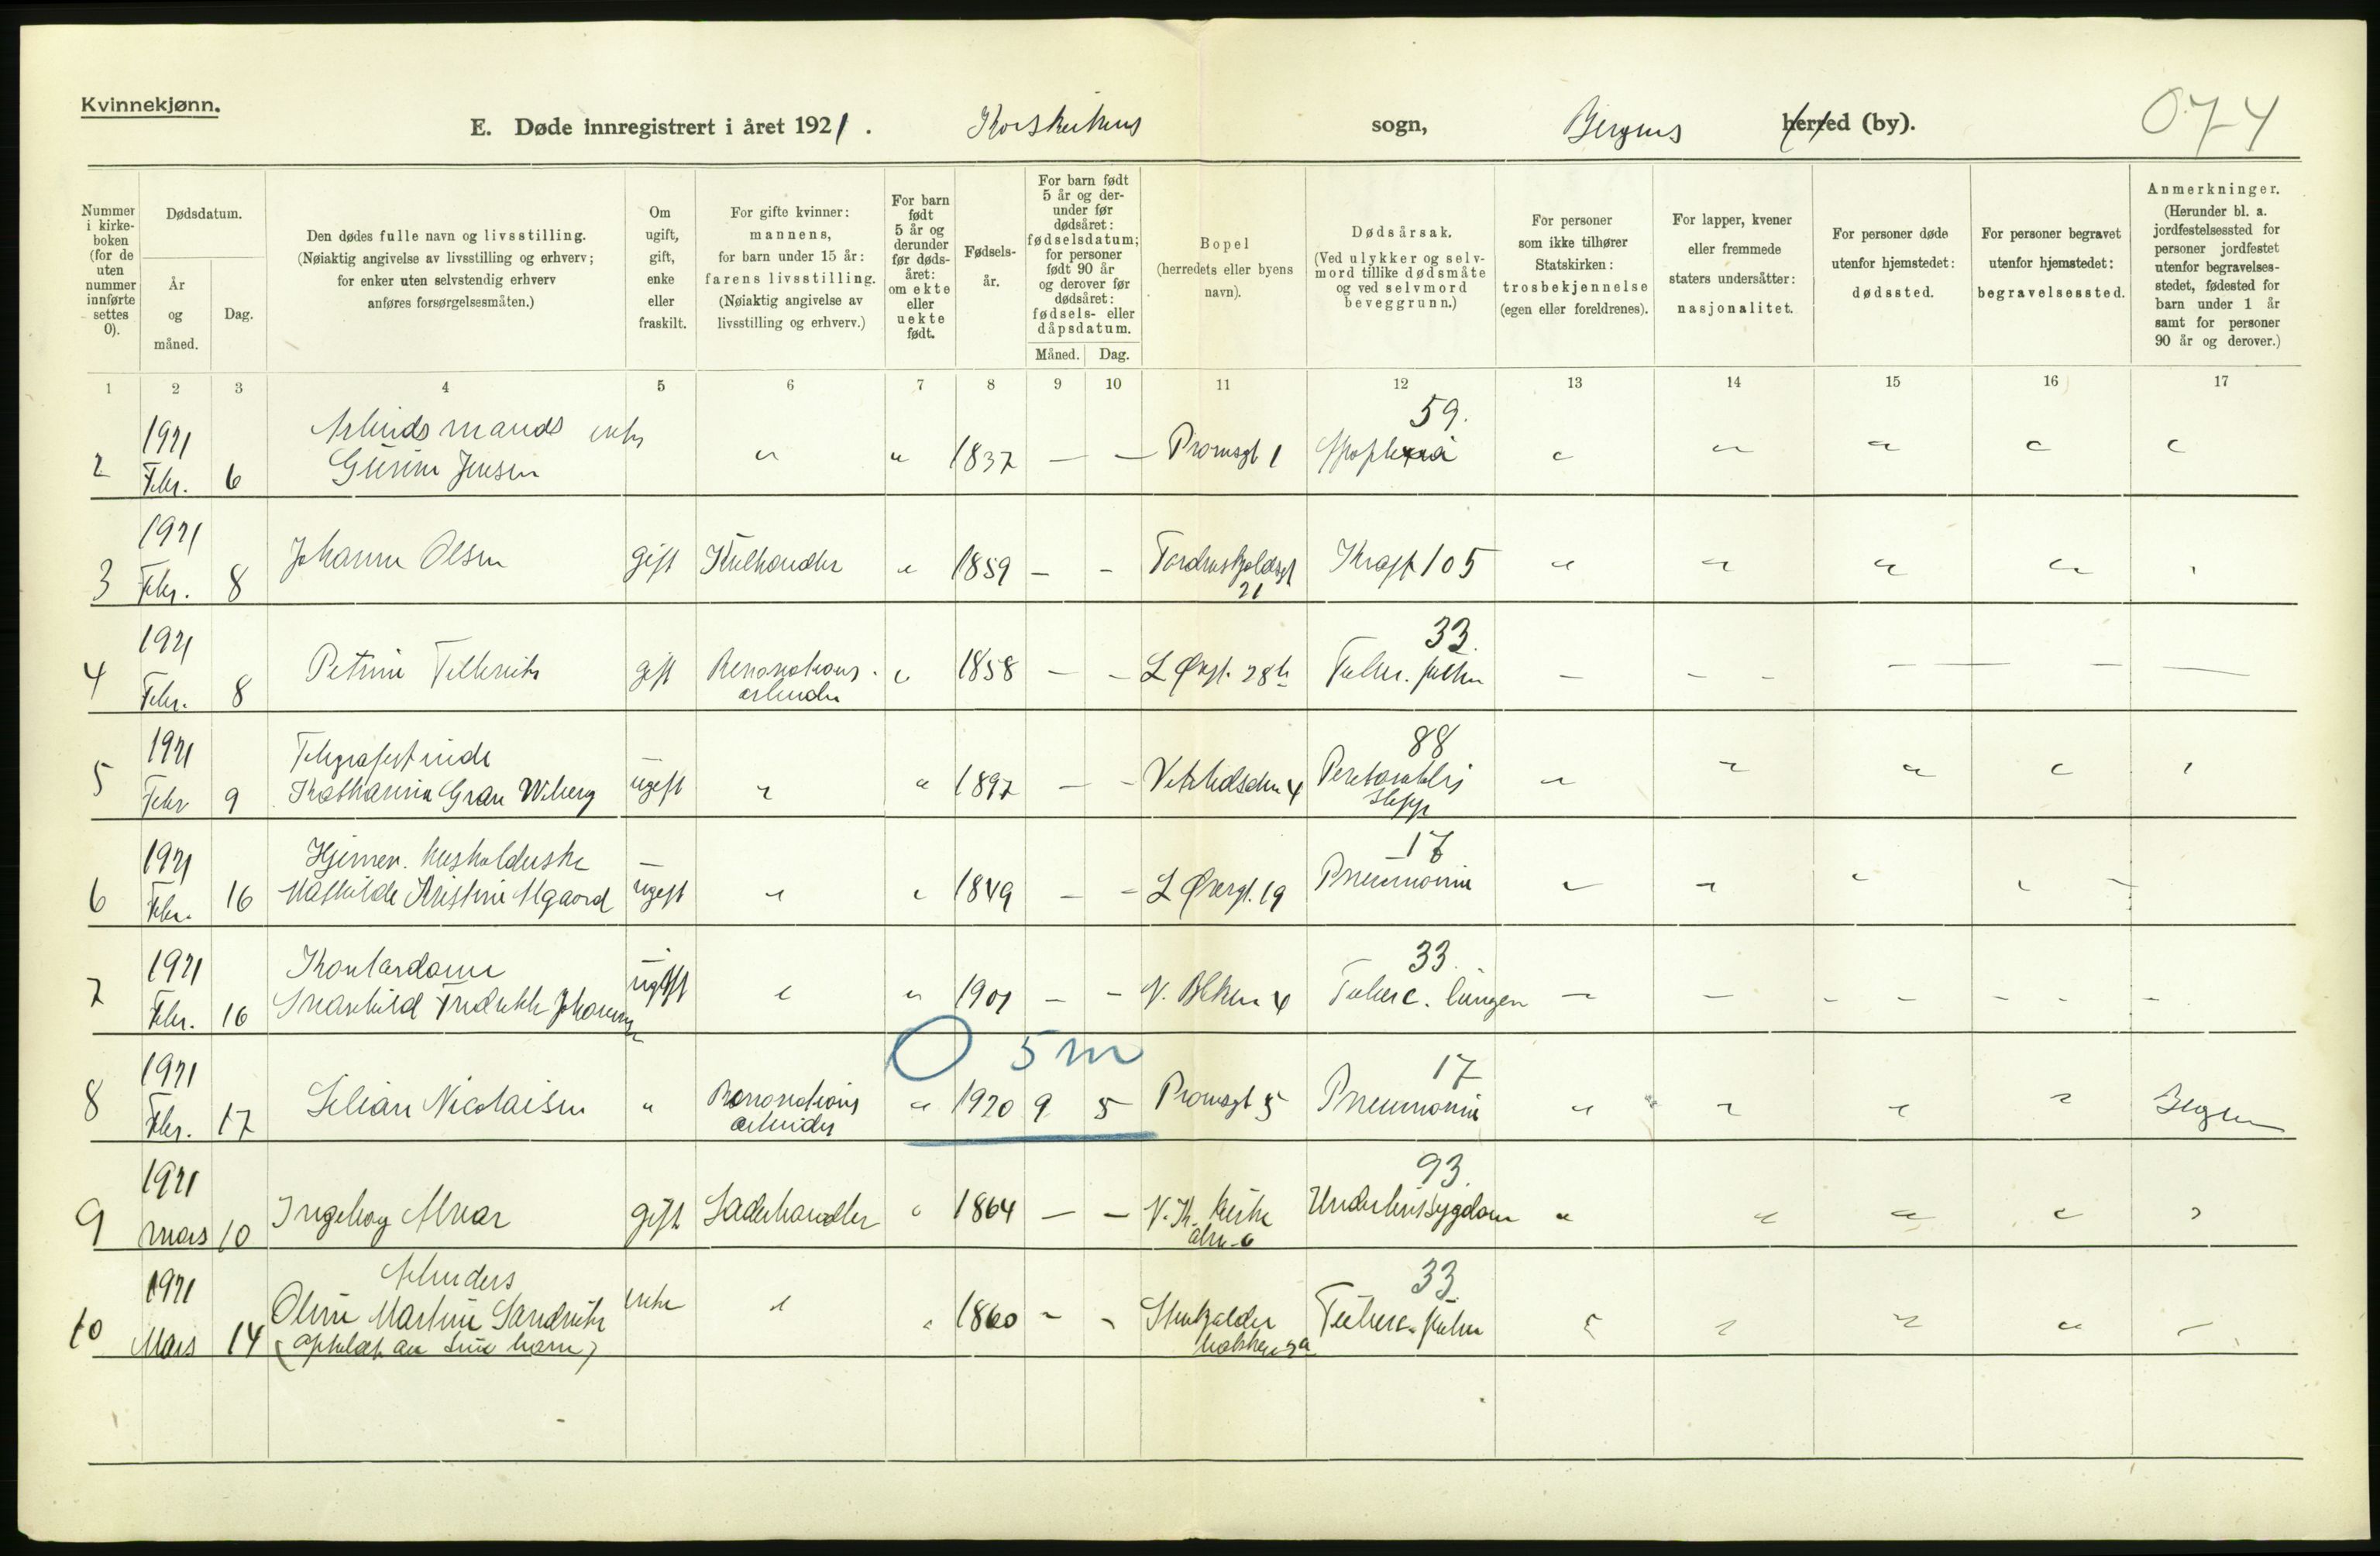 Kvinnekjønn.
E. Døde innregistrert i året 1921. Korskirkens sogn, Bergens herred (by). 074
Nummer i kirke-boken (for de uten nummer innførte settes 0).
Dødsdatum.
År og måned.
Dag.
Den dødes fulle navn og livsstilling.
(Nøiaktig angivelse av livsstilling og erhverv;
for enker uten selvstendig erhverv
anføres forsørgelsesmåten.)
Om ugift, gift, enke eller fraskilt.
For gifte kvinner:
mannens,
for barn under 15 år:
farens livsstilling.
(Nøiaktig angivelse av
livsstilling og erhverv.)
For barn født 5 år og derunder før døds-året: om ekte eller uekte født.
Fødsels-år.
For barn født 5 år og der-under før dødsåret: fødselsdatum; for personer født 90 år og derover før dødsåret: fødsels- eller dåpsdatum.
Måned. Dag.
Bopel
(herredets eller byens
navn).
Dødsårsak.
(Ved ulykker og selv-
mord tillike dødsmåte
og ved selvmord
beveggrunn.)
For personer
som ikke tilhører
Statskirken:
trosbekjennelse
(egen eller foreldrenes).
For lapper, kvener
eller fremmede
staters undersåtter:
nasjonalitet.
For personer døde
utenfor hjemstedet:
dødssted.
For personer begravet
utenfor hjemstedet:
begravelsessted.
Anmerkninger.
(Herunder bl. a.
jordfestelsessted for
personer jordfestet
utenfor begravelses-
stedet, fødested for
barn under 1 år
samt for personer
90 år og derover.)
1 2 3 4 5 6 7 8 9 10 11 12 13 14 15 16 17
1921 Arbeidsmands enke 59.
2 Febr. 6 Jensen " " 1837 — — Promsgt 1 Apoplexia " " " " "
1921
3 Febr. 8 Johanne Olsen gift Kulhandler " 1859 — — Tordenskjoldsgt 21 Kraft 105 " " " "
1921 33.
4 Febr. 8 Petrine gift Renovations- " 1858 — — L Øvregt. 28b Tuberc. pulm — — — — — —
arbeider
1921 Telegrafistinde 88
5 Febr 9 Katharina Gran Wiberg ugift " " 1897 — — 4 " " " "
1921 Hjemmev. husholderske 17
6 Febr. 16 Mathilde Kristine ugift " " 1849 — — L Øvregt. 19 Pneumonie " " " "
1921 Kontordame 33.
7 Febr. 16 Fredrikke ugift " " 1901 — — 4 Tuberc. lungen — — — — — —
O 5 m
1921 17
8 Febr. 17 Lilian Nicolaisen " Renovations " 1920 9 5 Promsgt 5 Pneumonie " " " " Bergen
arbeider
1921 93.
9 Mars 10 Ingeborg Alvær gift Læderhandler " 1864 — — Underlivssygdom " " " " "
1921 Arbeiders 33.
10 Mars 14 Oline Martine enke " " 1860 — — Tuberc. pulm " " " "